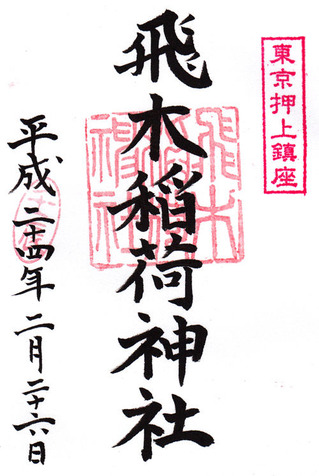 東京押上鎮座
飛木稲荷神社
平成二十四年二月二十六日